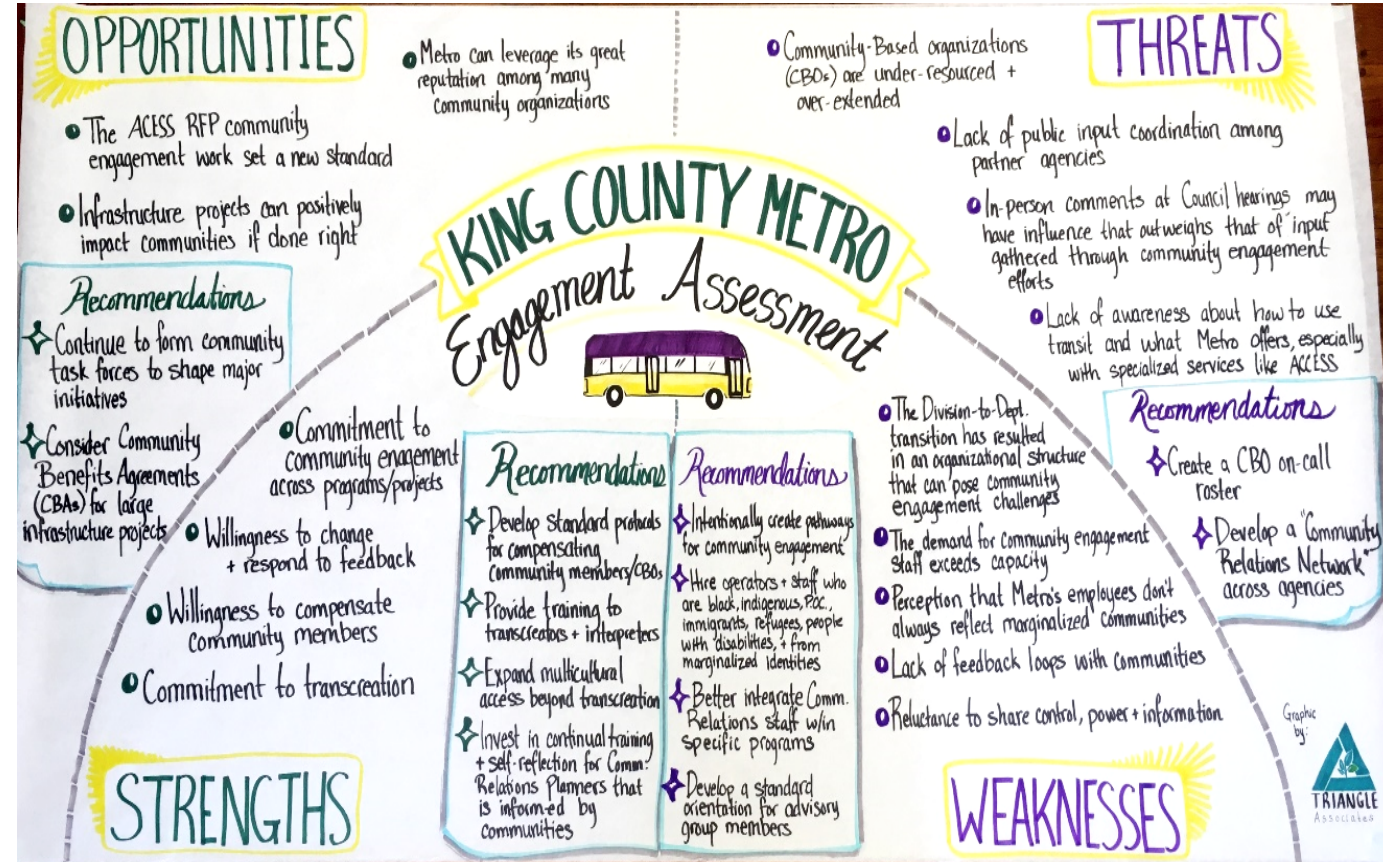 OPPORTUNITIES
Metro can leverage its great
reputation among many
community organizations
The ACESS RFP community
engagement work set a new standard
Infrastructure projects can positively
impact communities if done right
Recommendations
Continue to form community
task forces to shape major
initiatives
Consider Community
Benefits Agreements
(CBAs) for large
infrastructure projects
THREATS
Community-Based organizations
(CBOs) are under-resourced +
over-extended
Lack of public input coordination among
partner agencies
In-person comments at Council hearings may
have influence that outweighs that of input
gathered through community engagement
efforts
Lack of awareness about how to use
transit and what Metro offers, especially
with specialized services like ACCESS
Recommendations
Create a CBO on-call
roster
Develop a "Community
Relations Network"
across agencies
KING COUNTY METRO
Engagement Assessment
Commitment to
community enagement
across programs/projects
Willingness to change
+ respond to feedback
Willingness to compensate
community members
Commitment to transcreation
STRENGTHS
Recommendations
Develop standard protocols
for compensating
community members/CBOs
Provide training to
transcreators + interpreters
Expand multicultural
access beyond transcreation
Invest in continual training
+ self-reflection for Comm.
Relations Planners that
is informed by
communities
Recommendations
Intentionally create pathways
for community engagement
Hire operators + staff who
are black, indigenous, P.o.C.,
immigrants, refugees, people
with disabilities, + from
marginalized identities
Better integrate Comm.
Relations staff w/in
specific programs
Develop a standard
orientation for advisory
group members
The Division-to-Dept.
transition has resulted
in an organizational structure
that can pose community
engagement challenges
The demand for community engagement
staff exceeds capacity
Perception that Metro's employees don't
always reflect marginalized communities
Lack of feedback loops with communities
Reluctance to share control, power + information
WEAKNESSES
Graphic
by:
TRIANGLE
Associates